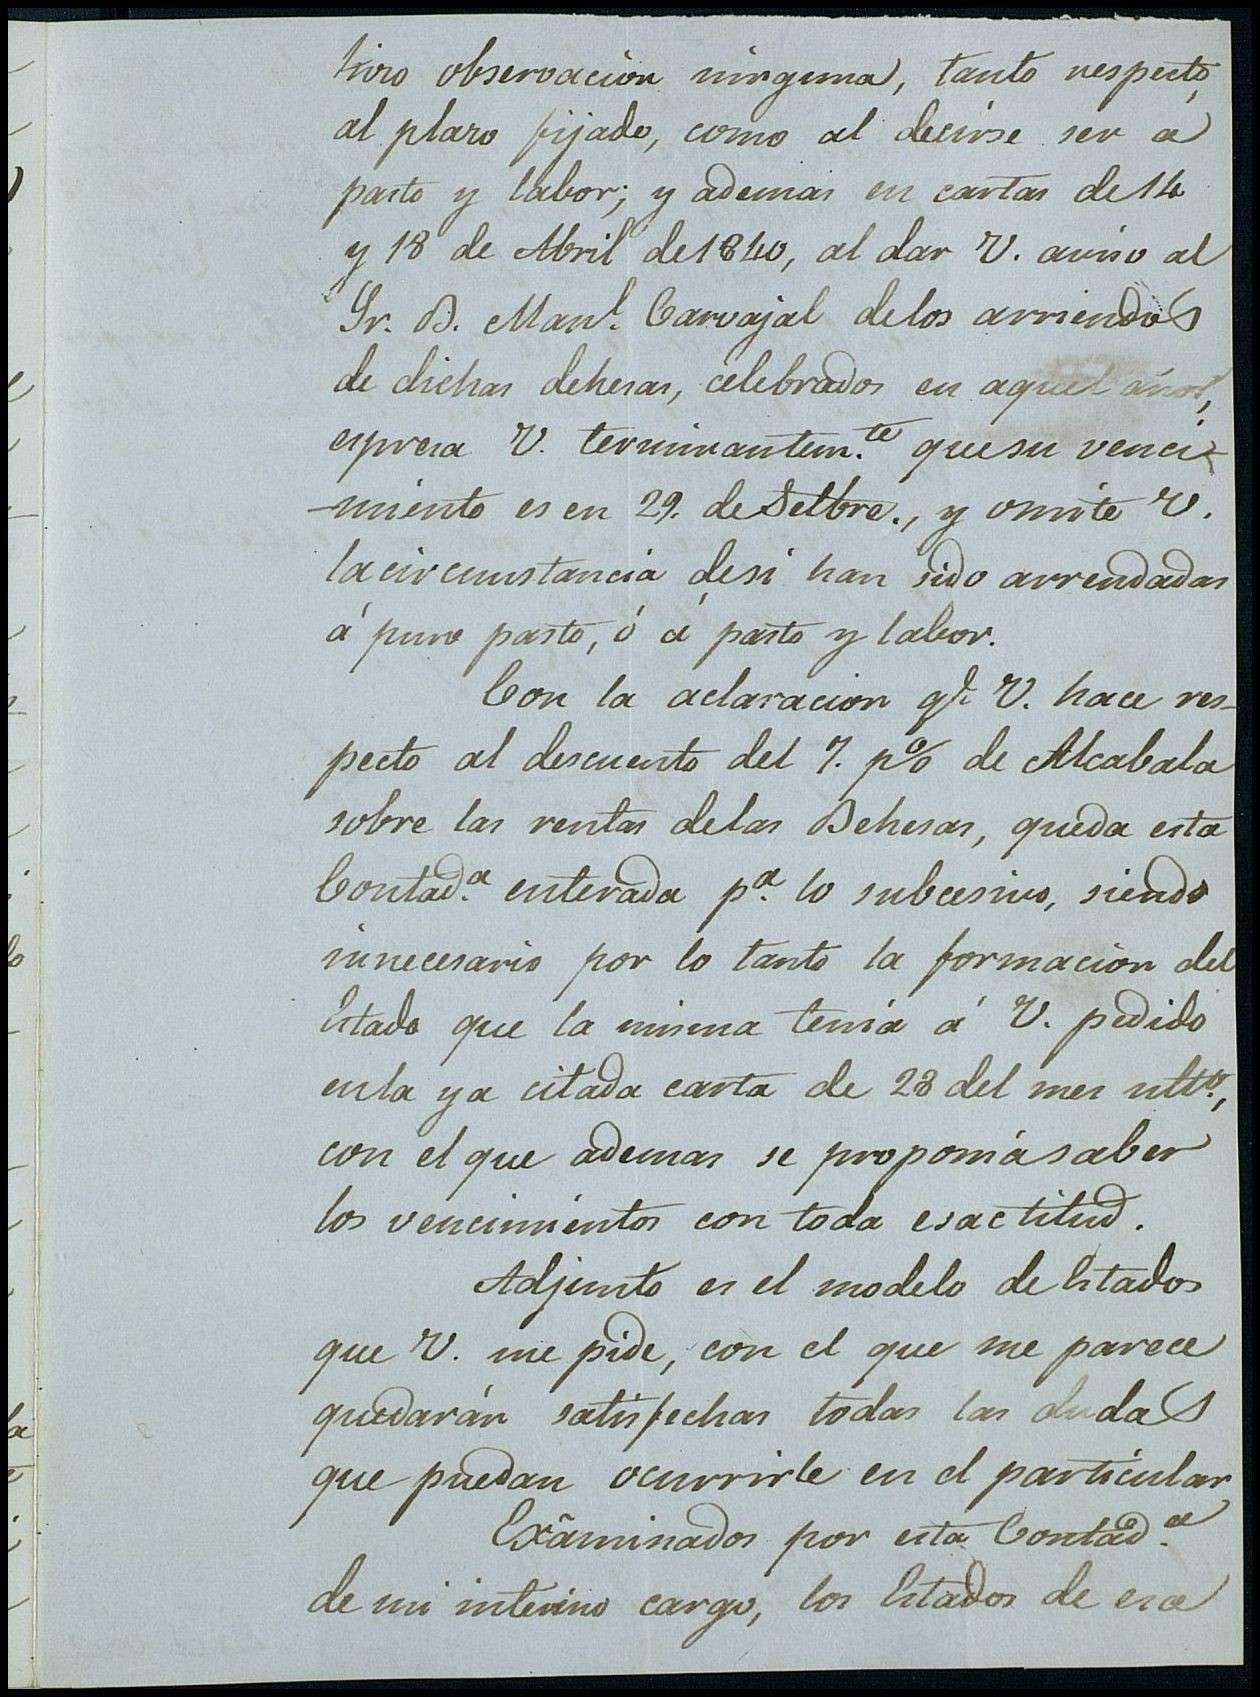 hizo observacion ninguna, tanto respecto,
al plazo fijado, como al decirse ser á
pasto y labor; y ademas en cartas de 14
y 18 de Abril de 1840, al dar V. aviso al
Sr. D. Manl. Carvajal delos arriendos
de dichas dehesas, celebrados en aquel año,
espresa V. terminantem.te que su venci-
-miento es en 29. de Setbre., y omite V.
la circunstancia desi han sido arrendadas
á puro pasto, ó á pasto y labor.
Con la aclaracion qe. V. hace res-
pecto al descuento del 7. p% de Alcabala
sobre las rentas delas Dehesas, queda esta
Contad.a enterada p.a lo subcesivo, siendo
innecesario por lo tanto la formacion del
Estado que la misma tenía á V. pedido
enla ya citada carta de 28 del mes ulto.,
con el que ademas se proponía saber
los vencimientos con toda esactitud.
Adjunto es el modelo de Estados
que V. me pide, con el que me parece
quedarán satisfechas todas las dudas
que puedan ocurrirle en el particular
Exâminados por esta Contad.a
de mi interino cargo, los Estados de esa